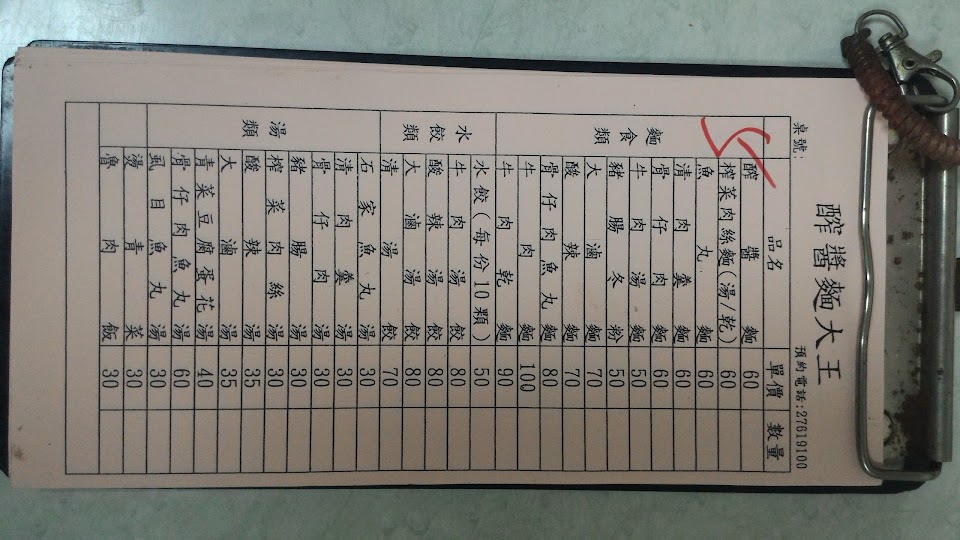 酢醬麵大王
預約電話:27619100
桌號:
品名 單價 數量
麵食類
酢醬麵 60
榨菜肉絲麵(湯/乾) 60
魚丸麵 60
清肉羹麵 60
骨仔肉麵 60
牛肉湯麵 50
豬腸冬粉 50
大滷麵 70
酸辣麵 70
骨仔肉魚丸麵 80
牛肉麵 100
牛肉乾麵 90
水餃類
水餃(每份10顆) 50
牛肉湯餃 80
酸辣湯餃 80
大滷湯餃 80
清湯餃 70
湯類
石家魚丸湯 30
清肉羹湯 30
骨仔肉湯 30
豬腸湯 30
榨菜肉絲湯 30
酸辣湯 35
大滷湯 35
青菜豆腐蛋花湯 40
骨仔肉魚丸湯 60
虱目魚丸湯 30
燙青菜 30
魯肉飯 30